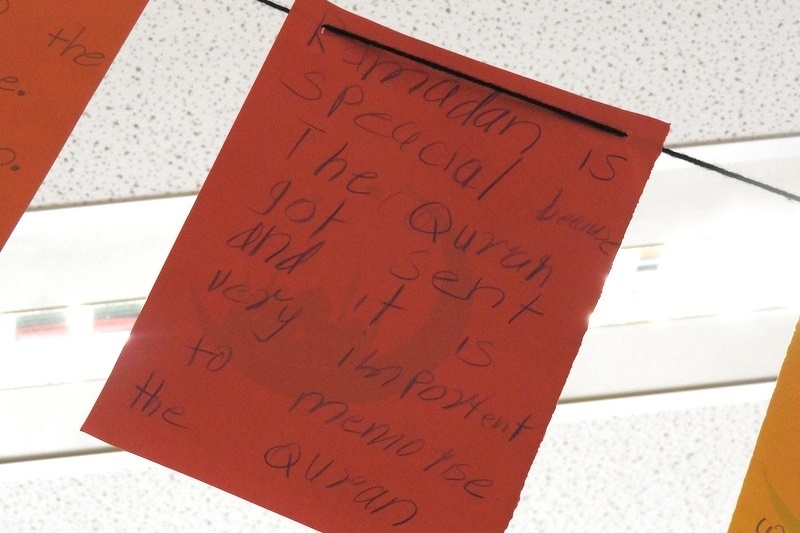 the
e.
Ramadan is
speacial because
The Quran
got sent
and it is
very important
to memorise
the Quran